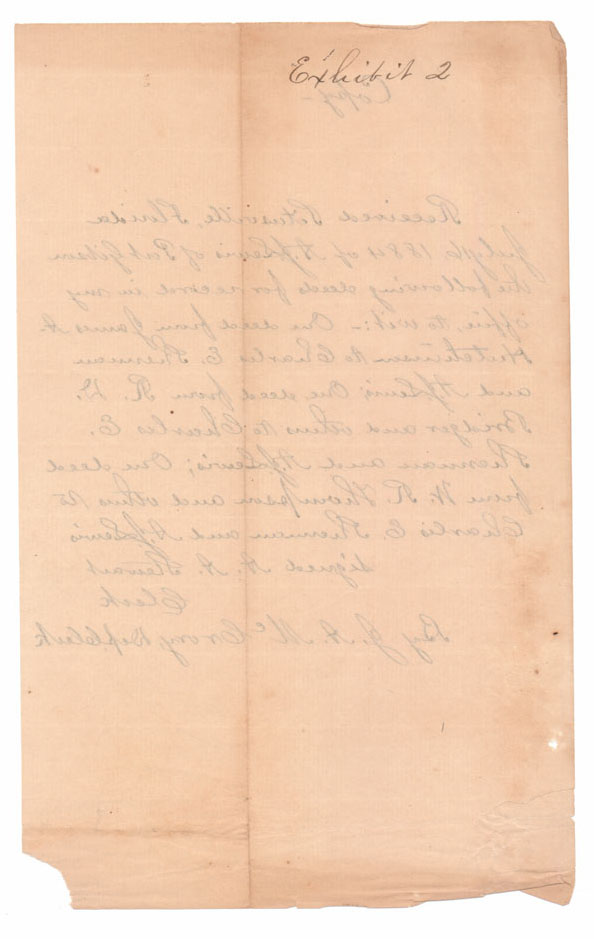 Exhibit 2
Copy -
Received Titusville, Florida
July 16, 1884 of A. J. Lewis of Pat Gibson
the following deeds for record in my
office, to wit:- One deed from James A.
Hutchinson to Charles E. Thurman
and A J Lewis; One deed from R. D.
Bridges and others to Charles E.
Thurman and A J Lewis; One deed
from W. R. Thompson and others to
Charles E. Thurman and A J Lewis
Signed A. A. Stewart
Clerk
By J. A. McCrory Dep. Clerk